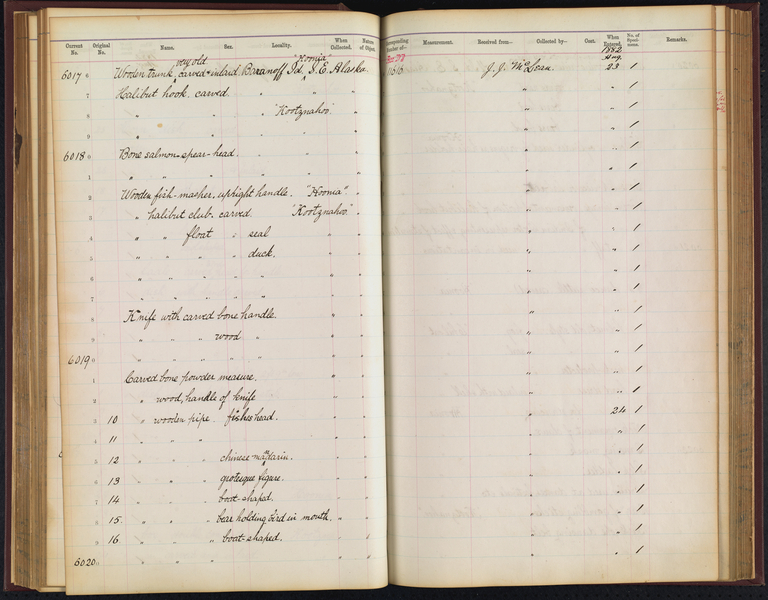 Current No. Original No. Name. Sex. Locality. When Collected. Nature of Object. Measurement. Received from— Collected by— Cost. When Entered. No. of Specimens. Remarks.
1882
very old "Hoonia" Aug.
6017 0 Wooden trunk, carved & inlaid. Baranoff Id. S.E. Alaska. 11616 J. J. McLean 23 1
7 Halibut hook, carved " " " " " 1
8 " " " "Kootznahoo" " " " 1
9 " " " " " " " 1
6018 0 Bone salmon-spear-head. " " " " " 1
1 " " " " " " " " 1
2 Wooden fish-masher, upright handle. "Hoonia". " " " 1
3 " halibut club, carved "Kootznahoo". " " " 1
4 " " float " seal " " " 1
5 " " " " duck. " " " 1
6 " " " " " " " " 1
7 " " " " " " " " 1
8 Knife with carved bone handle. " " " 1
9 " " " " wood " " " " 1
6019 0 " " " " " " " " " 1
1 Carved bone powder measure. " " " 1
2 " wood, handle of knife " " " 1
3 10 " wooden pipe. fishes head. " " 24 1
4 11 " " " " " " 1
5 12 " " " chinese mandarin. " " " 1
6 13 " " " grotesque figure. " " " 1
7 14 " " " boat-shaped. " " " 1
8 15. " " " bear holding bird in mouth. " " " 1
9 16 " " " boat-shaped. " " " 1
6020 0 " " " " " " " 1